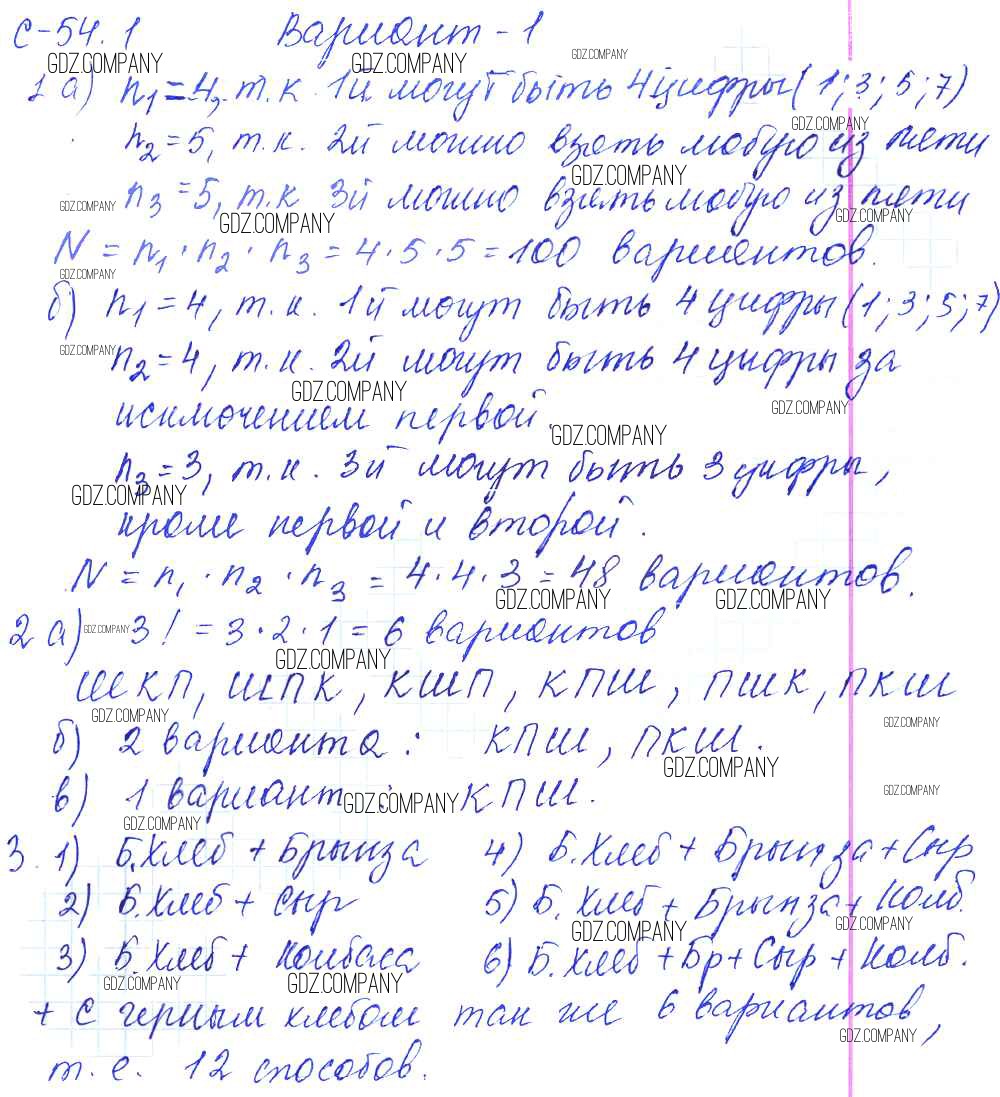 С-54.1 Вариант-1
GDZ.COMPANY GDZ.COMPANY GDZ.COMPANY
1 а) n₁=4, т.к. 1й могут быть 4 цифры(1;3;5;7)
GDZ.COMPANY
n₂=5, т.к. 2й можно взять любую из пяти
GDZ.COMPANY
n₃=5, т.к 3й можно взять любую из пяти
GDZ.COMPANY GDZ.COMPANY GDZ.COMPANY
N = n₁·n₂·n₃=4·5·5=100 вариантов.
GDZ.COMPANY
б) n₁=4, т.к. 1й могут быть 4 цифры(1;3;5;7)
GDZ.COMPANY
n₂=4, т.к. 2й могут быть 4 цифры за
GDZ.COMPANY GDZ.COMPANY
исключением первой.
GDZ.COMPANY
n₃=3, т.к. 3й могут быть 3 цифры,
GDZ.COMPANY
кроме первой и второй.
N = n₁·n₂·n₃ = 4·4·3=48 вариантов.
GDZ.COMPANY GDZ.COMPANY
2 а) GDZ.COMPANY 3! = 3·2·1 = 6 вариантов
GDZ.COMPANY
ШКП, ШПК, КШП, КПШ, ПШК, ПКШ
GDZ.COMPANY GDZ.COMPANY
б) 2 варианта: КПШ, ПКШ.
GDZ.COMPANY
в) 1 вариант: GDZ.COMPANY КПШ.
GDZ.COMPANY
GDZ.COMPANY
3. 1) Б.Хлеб + Брынза 4) Б.Хлеб + Брынза+Сыр
2) Б.Хлеб + Сыр 5) Б. Хлеб + Брынза+ Колб.
GDZ.COMPANY GDZ.COMPANY
3) Б.Хлеб + Колбаса 6) Б.Хлеб+Бр+Сыр+Колб.
GDZ.COMPANY GDZ.COMPANY
+ С черным хлебом так же 6 вариантов,
GDZ.COMPANY
т.е. 12 способов.